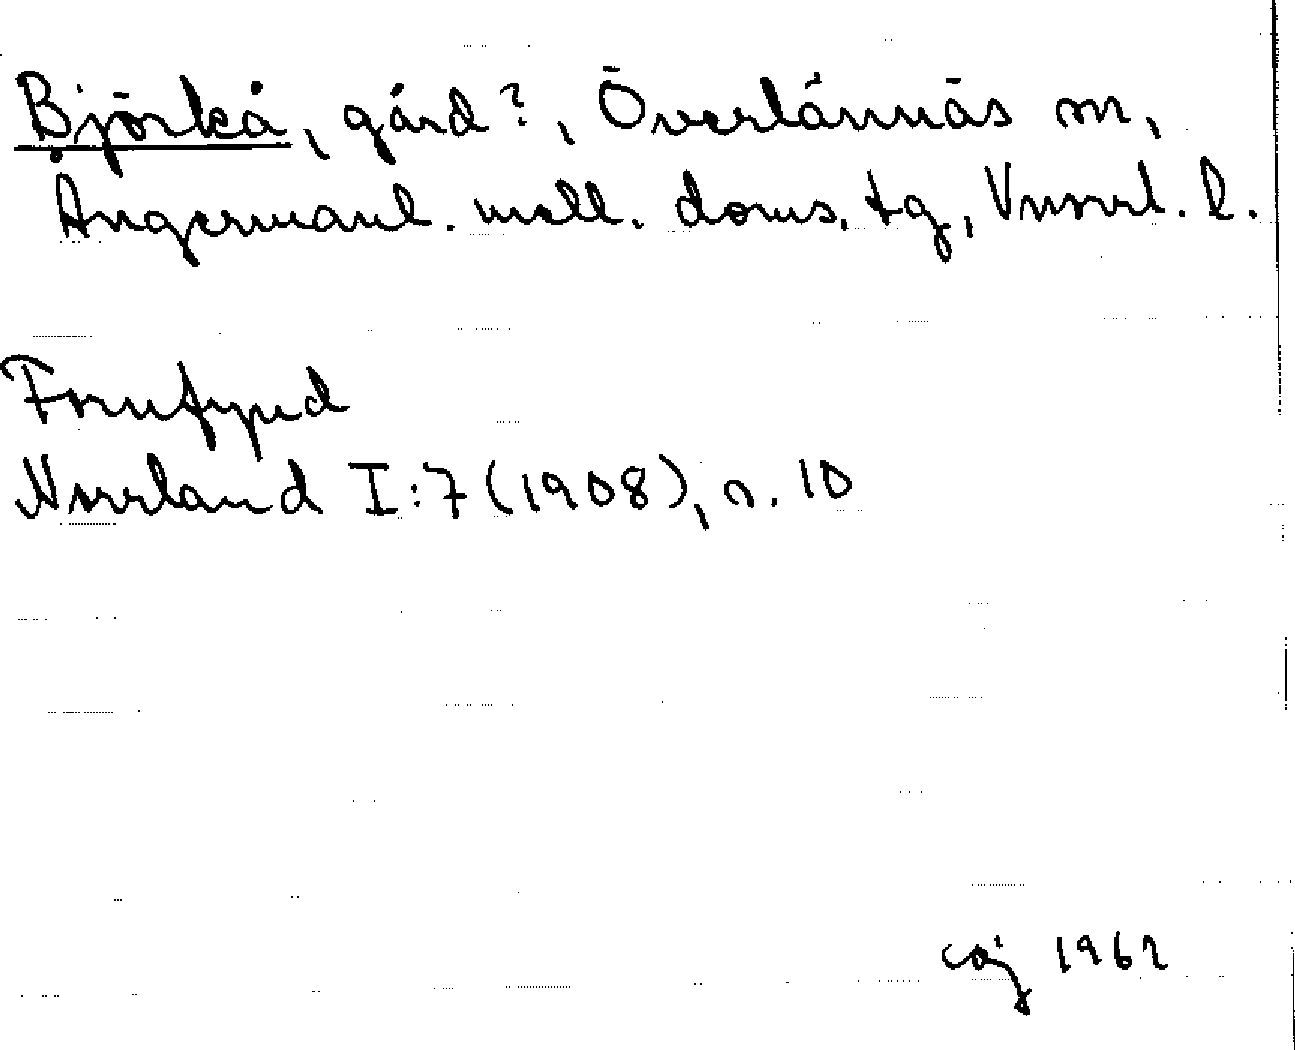 Björkå, gård?, Överlännäs sn,
Ångermanl. mell. doms. tg, Vnorrl. l.
Fornfynd
Norrland I:7 (1908), s. 10
caj 1962